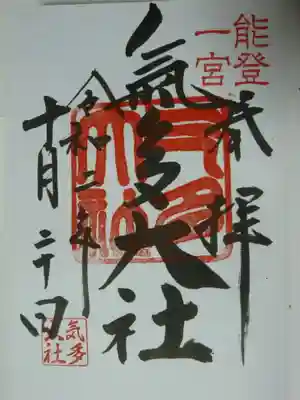 能登
一宮
奉拝
氣多大社
令和二年
十月二十日
気多
大社